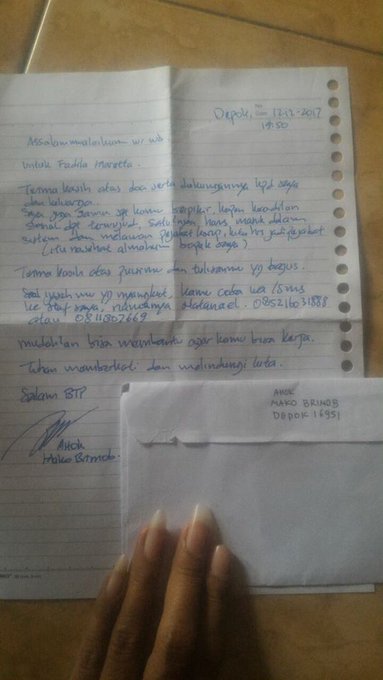 Depok, 12.12.2017
19:50
Assalammualaikum wr wb
Untuk Fadila Maretta.
Terima kasih atas doa serta dukungannya kpd saya
dan keluarga.
Saya juga sama spt kamu berpikir, kapan keadilan
sosial dpt terwujud. Satu2nya, harus masuk dalam
sistem dan melawan pejabat korup, kita hrs jadi pejabat
(itu nasihat almarhum bapak saya)
Terima kasih atas puisimu dan tulisanmu yg bagus.
Soal ijazah mu yg nyangkut, kamu coba wa/sms
ke staf saya, namanya Natanael. 085216031888
atau 0811807669
mudah2an bisa membantu agar kamu bisa kerja.
Tuhan memberkati dan melindungi kita.
Salam BTP
AHOK
Mako Brimob.
AHOK
MAKO BRIMOB
DEPOK 16951